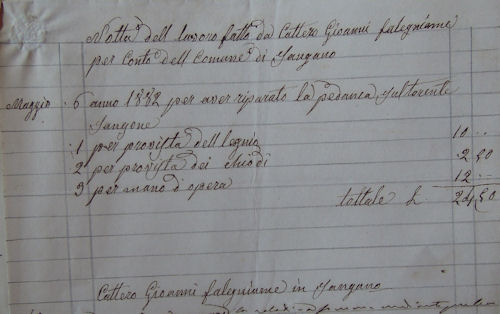 Notta dell lavoro fatto da Cattero Gioanni falegniame
per Conto dell Comune di Sangano
Maggio 6 anno 1882 per aver riparato la pedanca sul torente
Sangone
1 per provista dell legnio 10 --
2 per provista dei chiodi 2 50
3 per mano d'opera 12 --
tottale L. 24 50
Cattero Gioanni falegniame in Sangano